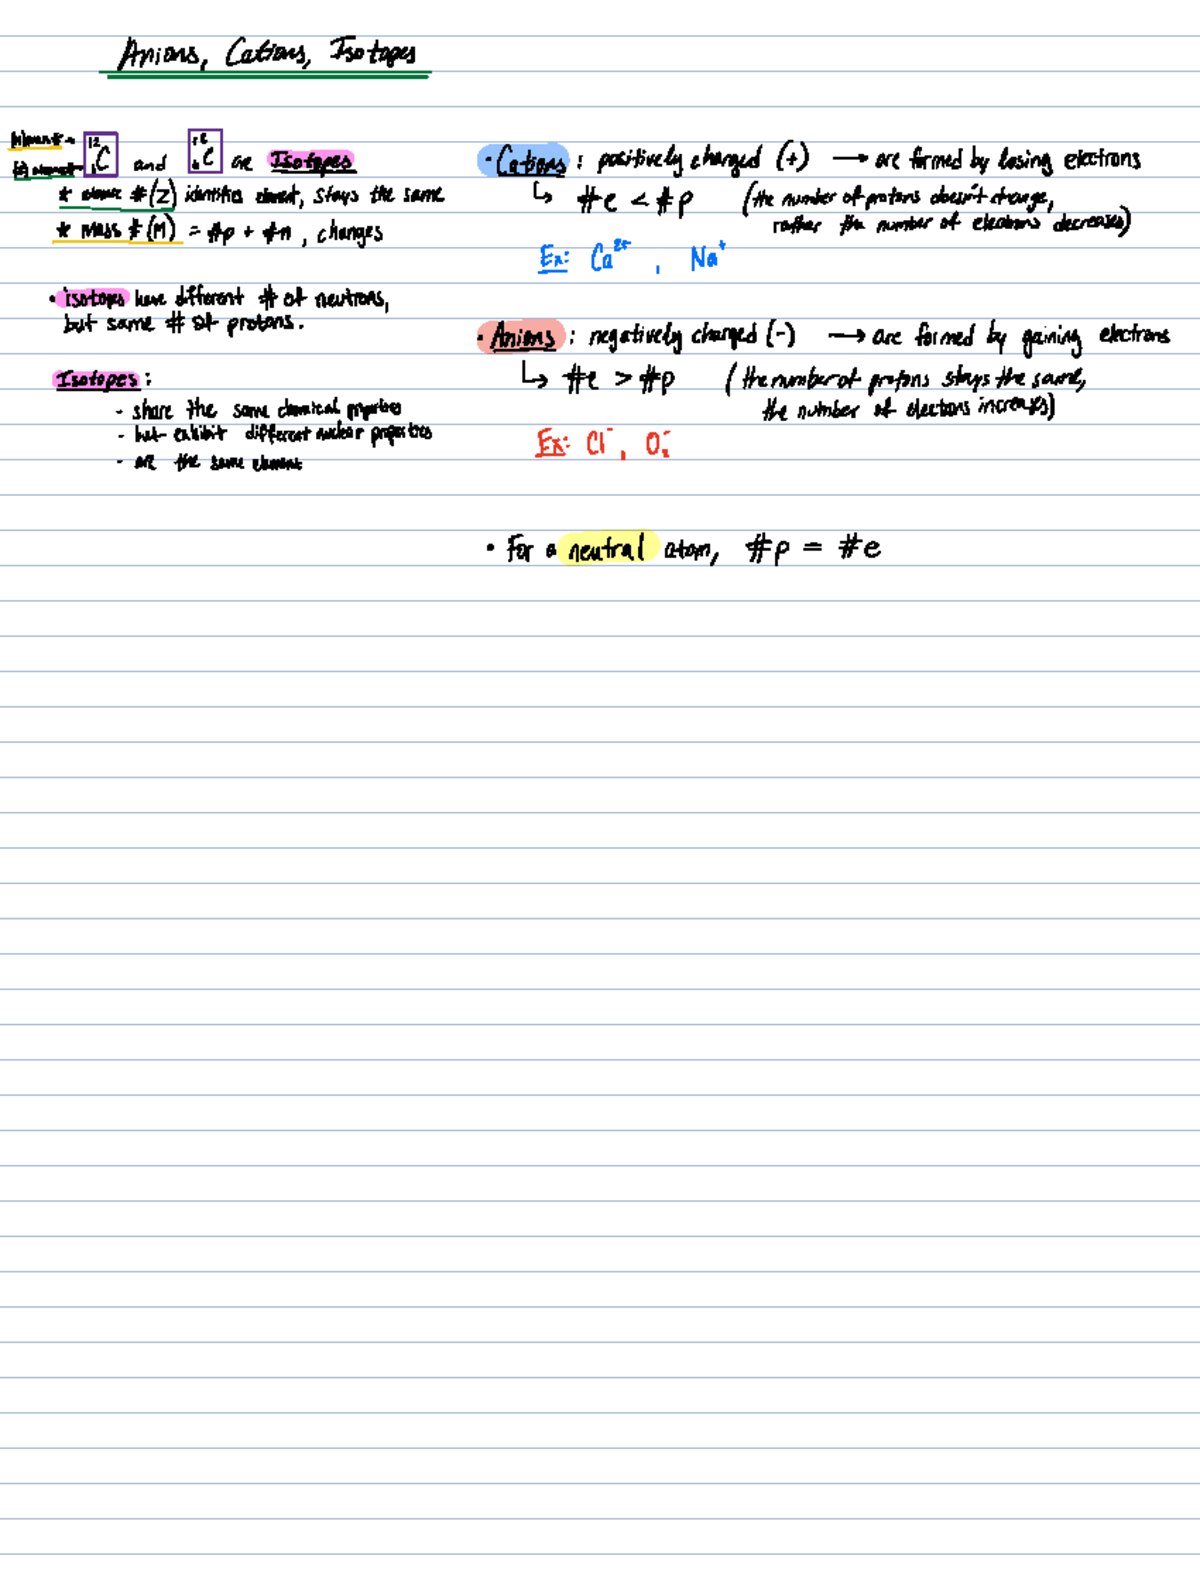 Anions, Cations, Isotopes
12 C and C are Isotopes
* atomic #(Z) identifies element, stays the same
* Mass #(M) = #p + #n, changes
• isotopes have different # of neutrons,
but same # of protons.
Isotopes:
- share the same chemical properties
- but exhibit different nuclear properties
- are the same element
• Cations: positively charged (+) → are formed by losing electrons
↳ #e < #p (the number of protons doesn't change,
rather the number of electrons decreases)
Ex: Ca²⁺, Na⁺
• Anions: negatively charged (-) → are formed by gaining electrons
↳ #e > #p (the number of protons stays the same,
the number of electrons increases)
Ex: Cl⁻, O₂⁻
• For a neutral atom, #p = #e